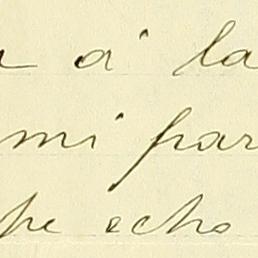 á la
mi par
pe echo